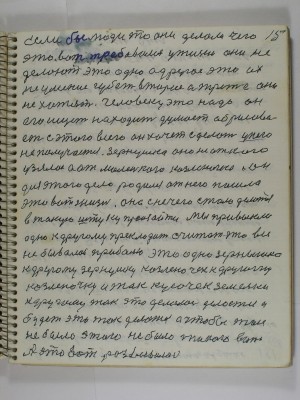 если бы люди то они делали чего 15
это вот требования у жизни они не
делают это одно а другое это их
неумение губет вторые а третье они
не хотят. Человеку это надо он
его ищет находит думает обрисова
ет с этого всего он хочет сделать у него
не получается. Зернушка она маткого
узла а от маленького колосочка он
для этого дело родился от него пошла
это вот жизнь, она с нечего стала делится
в такую штуку произойти Мы привыкли
одно к другому прикладит считат это вы
не бывало прибыло это одно зернышко
к другому зернушку колосочек к другому
колосочку и так кусочек земельки
к другому так это делали делается и
будет это так делатся а чтобы так
не было этого не было такого вот
А это вот развивало